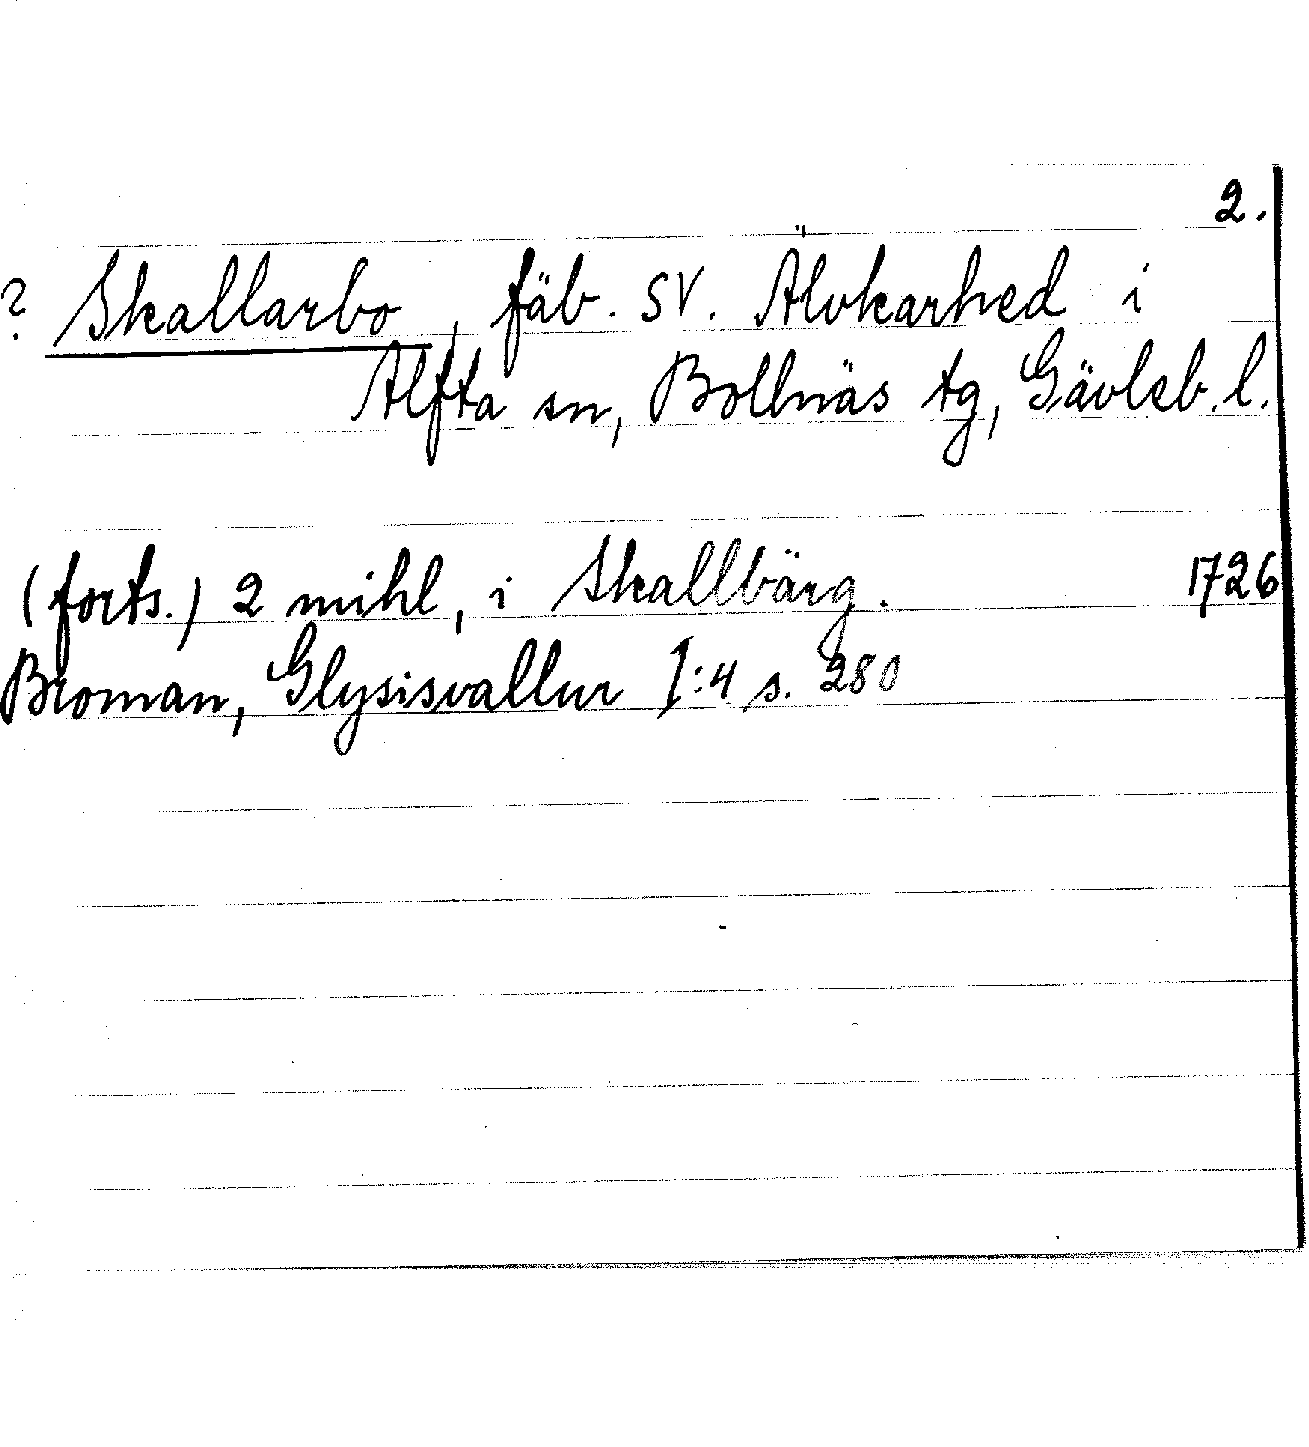 2.
? Skallarbo, fäb. SV. Älvkarhed i
Alfta sn, Bollnäs tg, Gävleb. l.
(forts.) 2 mihl, i Skallbärg. 1726
Broman, Glysisvallur I:4 s. 280